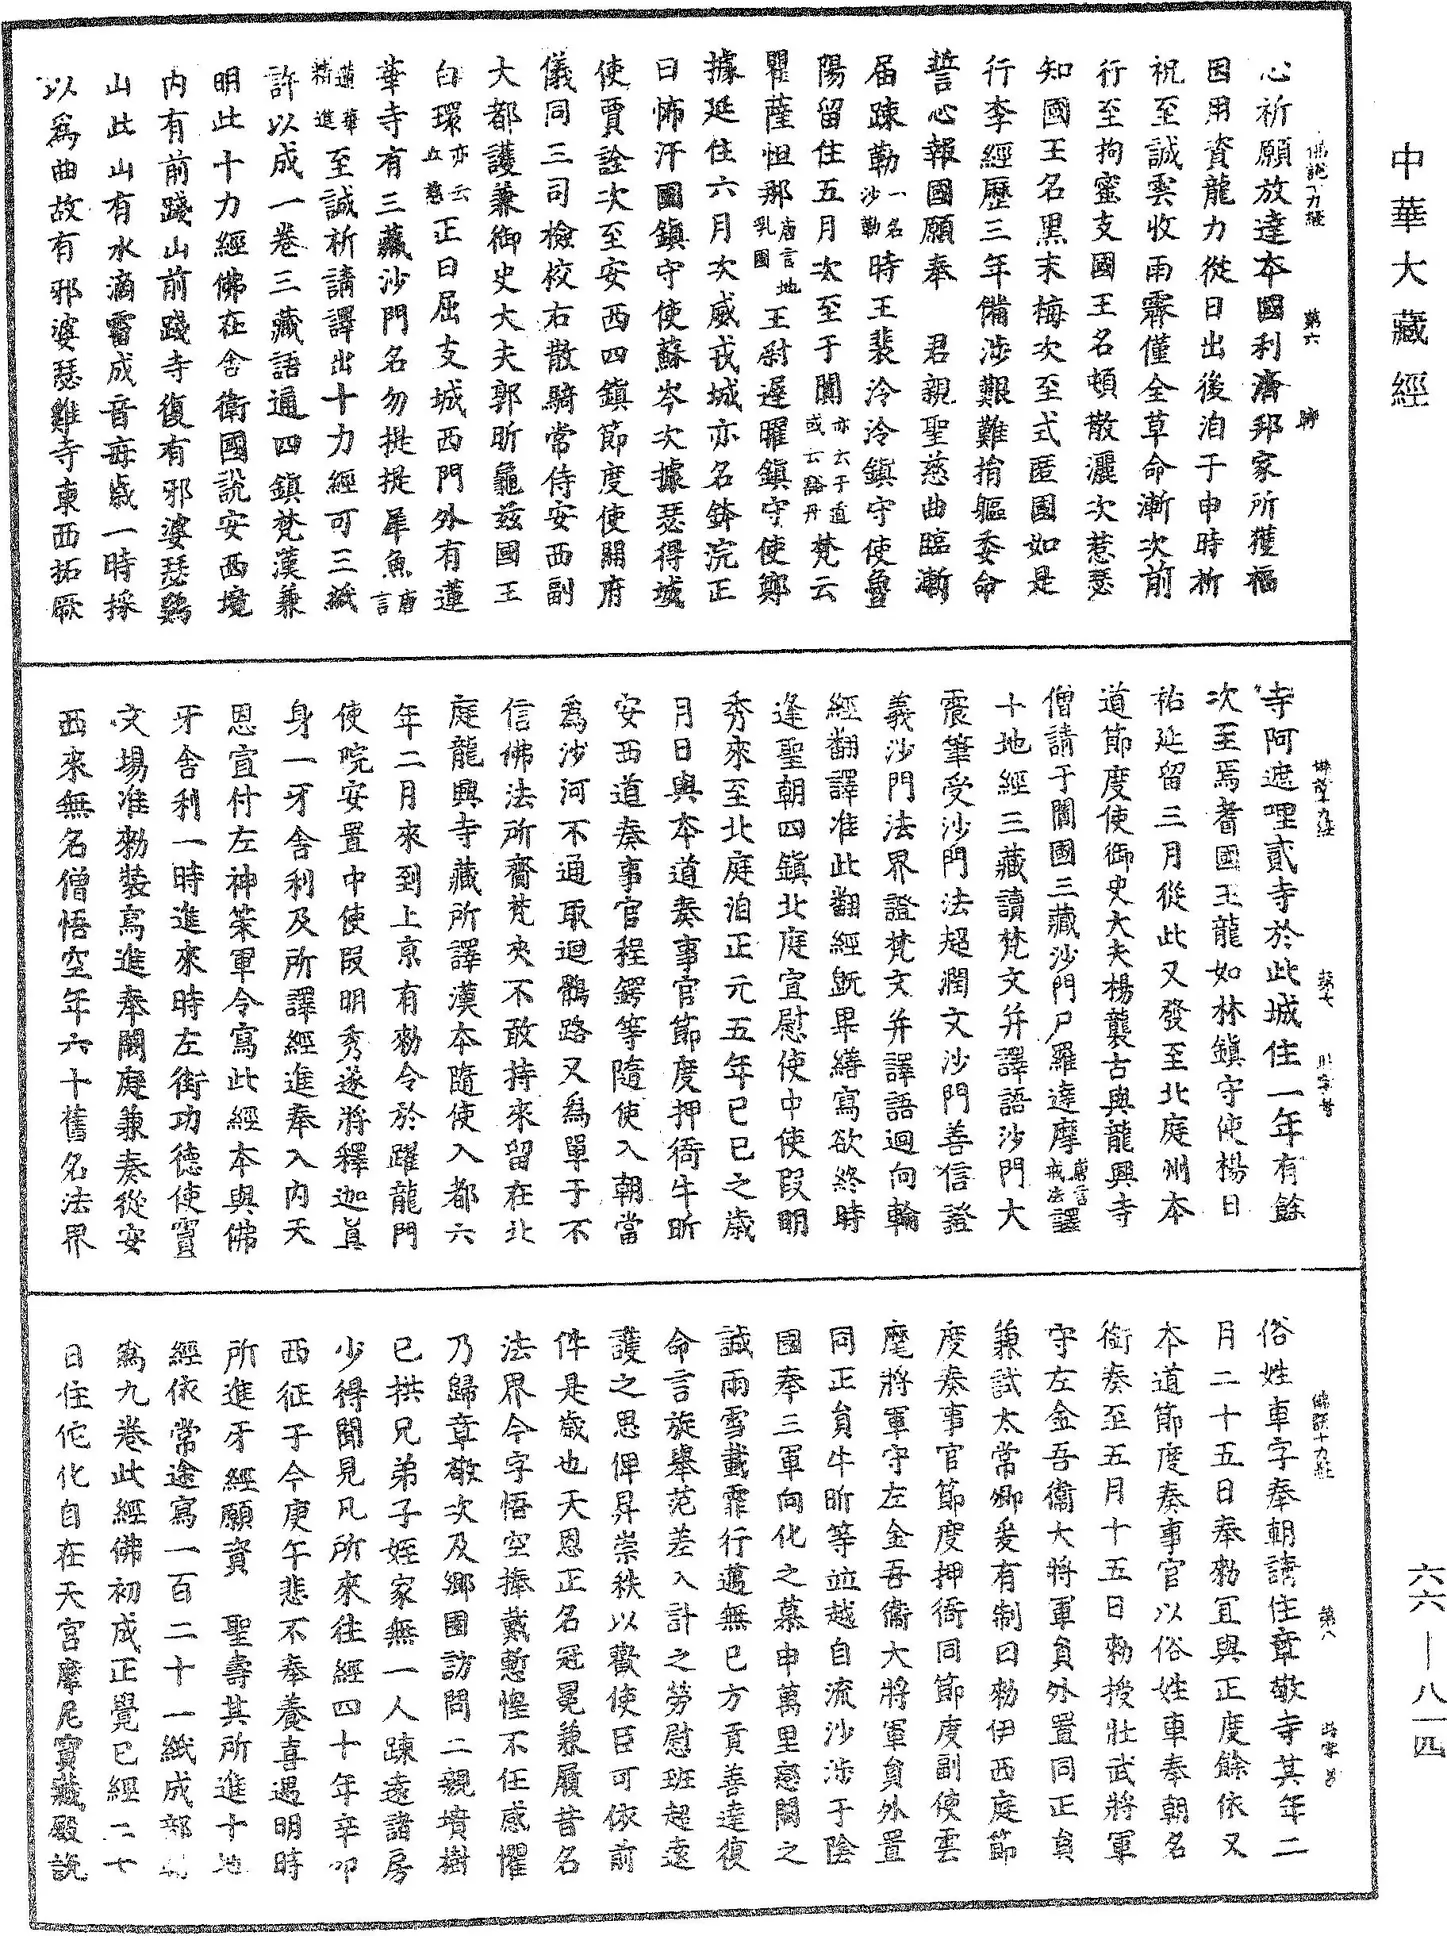 中華大藏經
心祈願放達本國利濟邦家所獲福
因用資龍力從日出後洎于申時祈
祝至誠雲收雨霽僅全草命漸次前
行至拘蜜支國王名頓散灑次惹瑟
知國王名黑未梅次至式匿國如是
行李經歷三年備涉艱難捐軀委命
誓心報國願奉 君親聖慈曲臨漸
届踈勒一名沙勒時王裴泠泠鎮守使魯
陽留住五月次至于闐亦云于遁或云谿丹梵云
瞿薩怛那唐言地乳國王尉遲曜鎮守使鄭
據延住六月次威戎城亦名鉢浣正
曰怖汗國鎮守使蘇岑次據瑟得城
使賈詮次至安西四鎮節度使開府
儀同三司檢校右散騎常侍安西副
大都護兼御史大夫郭昕龜茲國王
白環亦云丘慈正曰屈支城西門外有蓮
華寺有三藏沙門名勿提提犀魚唐言
蓮華精進至誠祈請譯出十力經可三紙
許以成一卷三藏語通四鎮梵漢兼
明此十力經佛在舍衛國說安西境
内有前踐山前踐寺復有邪婆瑟鷄
山此山有水滴霤成音每歲一時採
以爲曲故有邪婆瑟雞寺東西拓厥
寺阿遮哩貳寺於此城住一年有餘
次至焉耆國王龍如林鎮守使楊日
祐延留三月從此又發至北庭州本
道節度使御史大夫楊襲古與龍興寺
僧請于闐國三藏沙門尸羅達摩唐言戒法譯
十地經三藏讀梵文并譯語沙門大
震筆受沙門法超潤文沙門善信證
義沙門法界證梵文并譯語迴向輪
經翻譯准此翻經旣畢繕寫欲終時
逢聖朝四鎮北庭宣慰使中使段明
秀來至北庭洎正元五年已巳之歲
月日與本道奏事官節度押衙牛昕
安西道奏事官程鍔等隨使入朝當
爲沙河不通取迴鶻路又爲單于不
信佛法所齎梵夾不敢持來留在北
庭龍興寺藏所譯漢本隨使入都六
年二月來到上京有勑令於躍龍門
使院安置中使段明秀遂將釋迦眞
身一牙舍利及所譯經進奉入内天
恩宣付左神策軍令寫此經本與佛
牙舍利一時進來時左街功德使竇
文場准勑裝寫進奉闕庭兼奏從安
西來無名僧悟空年六十舊名法界
俗姓車字奉朝請住章敬寺其年二
月二十五日奉勑宜與正度餘依又
本道節度奏事官以俗姓車奉朝名
銜奏至五月十五日勑授壯武將軍
守左金吾衞大將軍員外置同正員
兼試太常卿爰有制曰勑伊西庭節
度奏事官節度押衙同節度副使雲
麾將軍守左金吾衞大將軍員外置
同正員牛昕等並越自流沙涉于陰
國奉三軍向化之慕申萬里戀闕之
誠雨雪載霏行邁無已方貢善達復
命言旋舉范羌入計之勞慰班超遠
護之思俾昇崇秩以勸使臣可依前
件是歲也天恩正名冠冕兼履昔名
法界今字悟空捧戴慙惶不任感懼
乃歸章敬次及鄉國訪問二親墳樹
已拱兄弟子姪家無一人踈遠諸房
少得聞見凡所來往經四十年辛卯
西征于今庚午悲不奉養喜遇明時
所進牙經願資 聖壽其所進十地
經依常途寫一百二十一紙成部
爲九卷此經佛初成正覺已經二七
日住佗化自在天宮摩尼寶藏殿說
六六—八一四